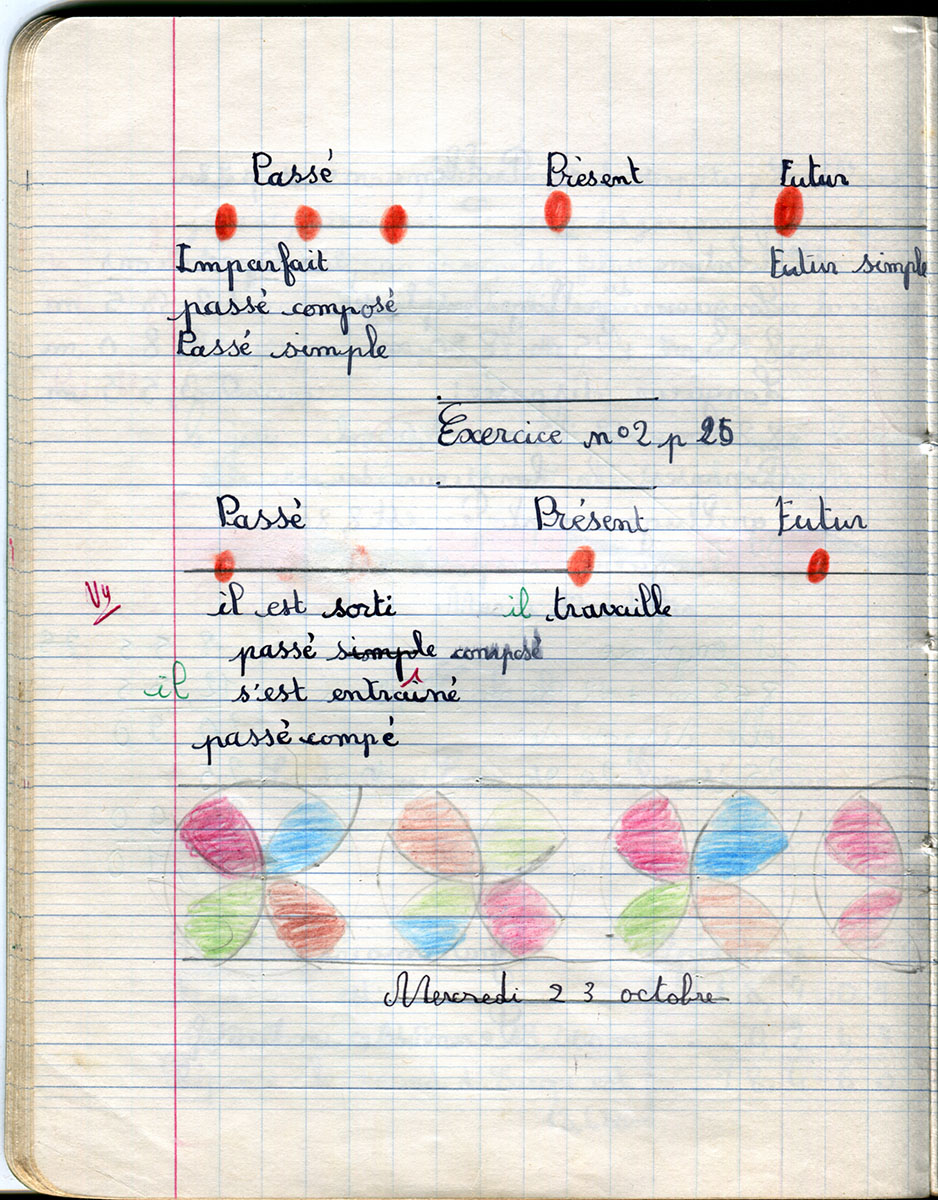 Passé Présent Futur
Imparfait Futur simple
passé composé
Passé simple
Exercice n°2 p 26
Passé Présent Futur
Vu il est sorti il travaille
passé simple composé
il s'est entraîné
passé compé
Mercredi 23 octobre